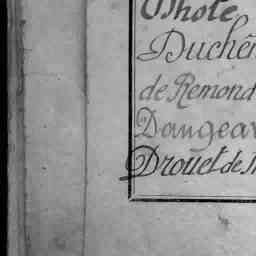 Duchên
de Remond
Dangeau
Drouet de